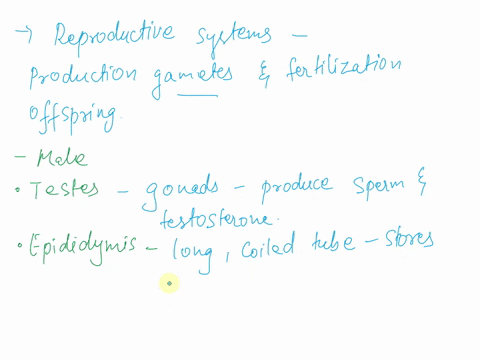 → Reproductive systems –
Production gametes & fertilization
offspring.
– Male
• Testes – gonads – produce sperm &
testosterone.
• Epididymis – long, coiled tube – stores